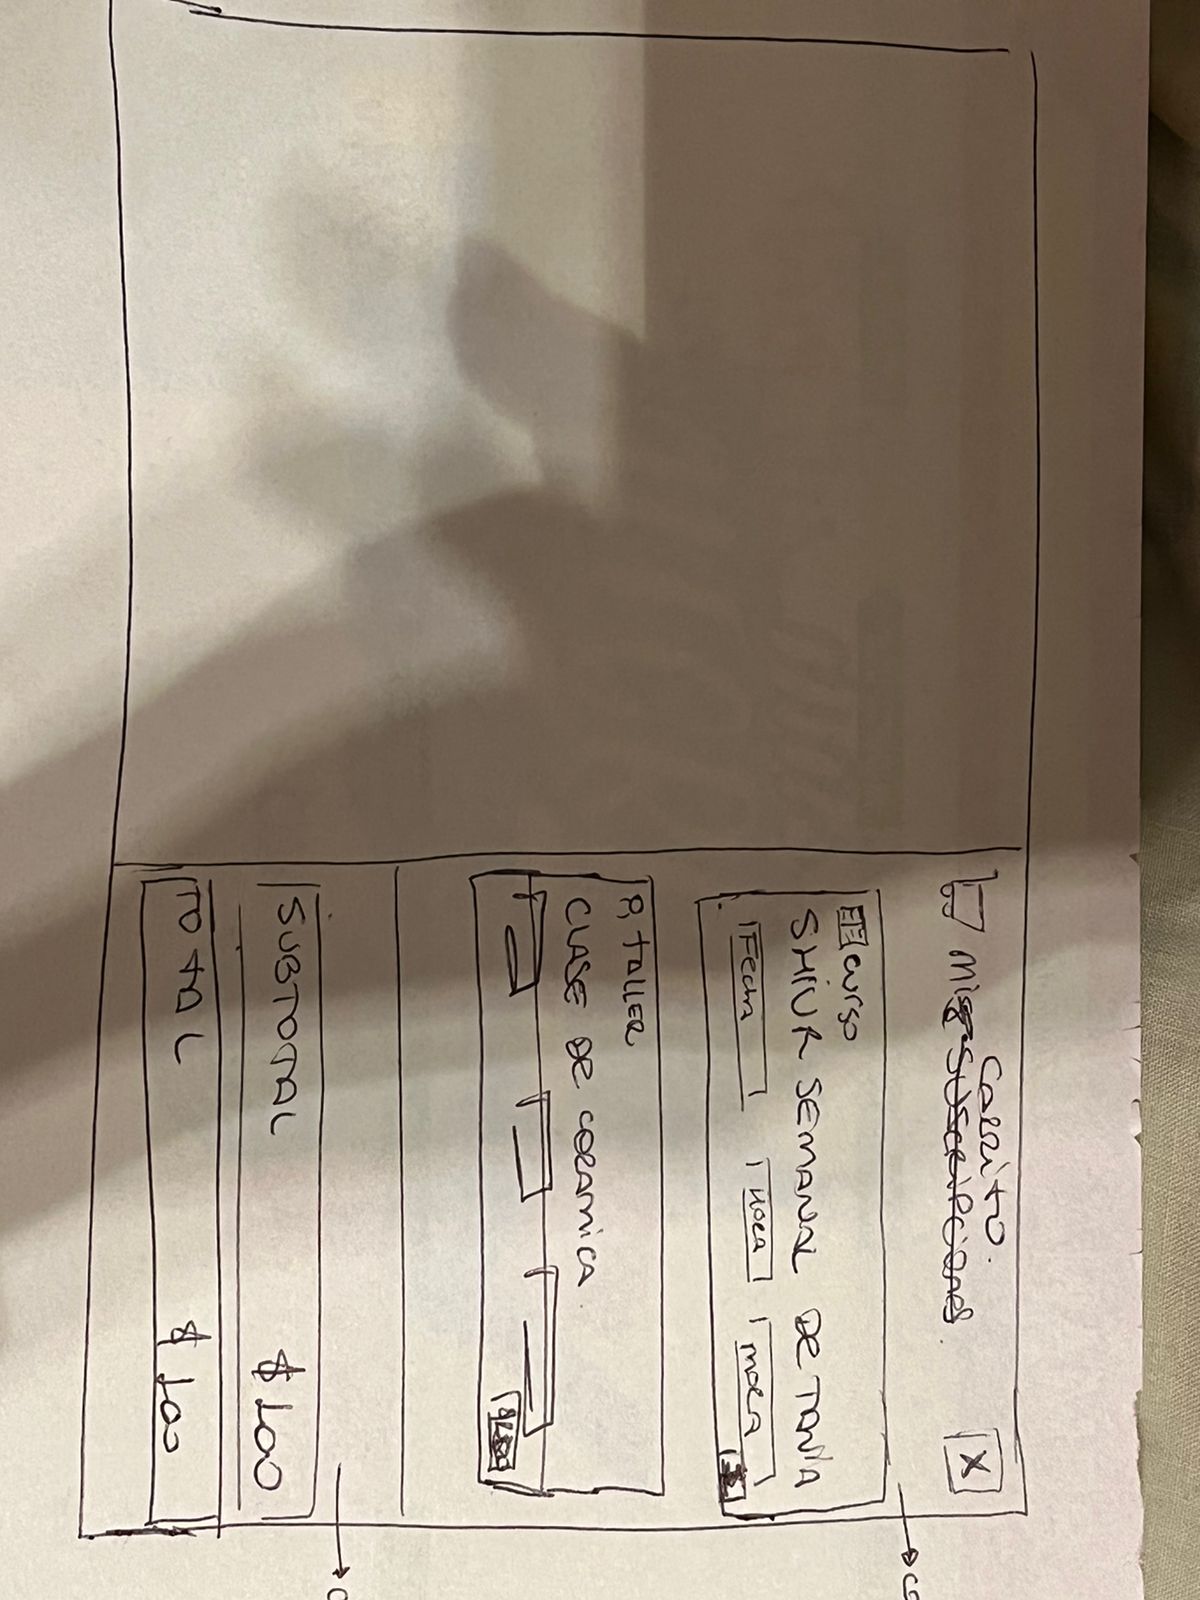 Carrito.
Mis Suscripciones
X
Curso
SHIUR SEMANAL DE TANIA
Fecha
Hora
Taller
CLASE DE CERAMICA
SUBTOTAL $100
TOTAL $100